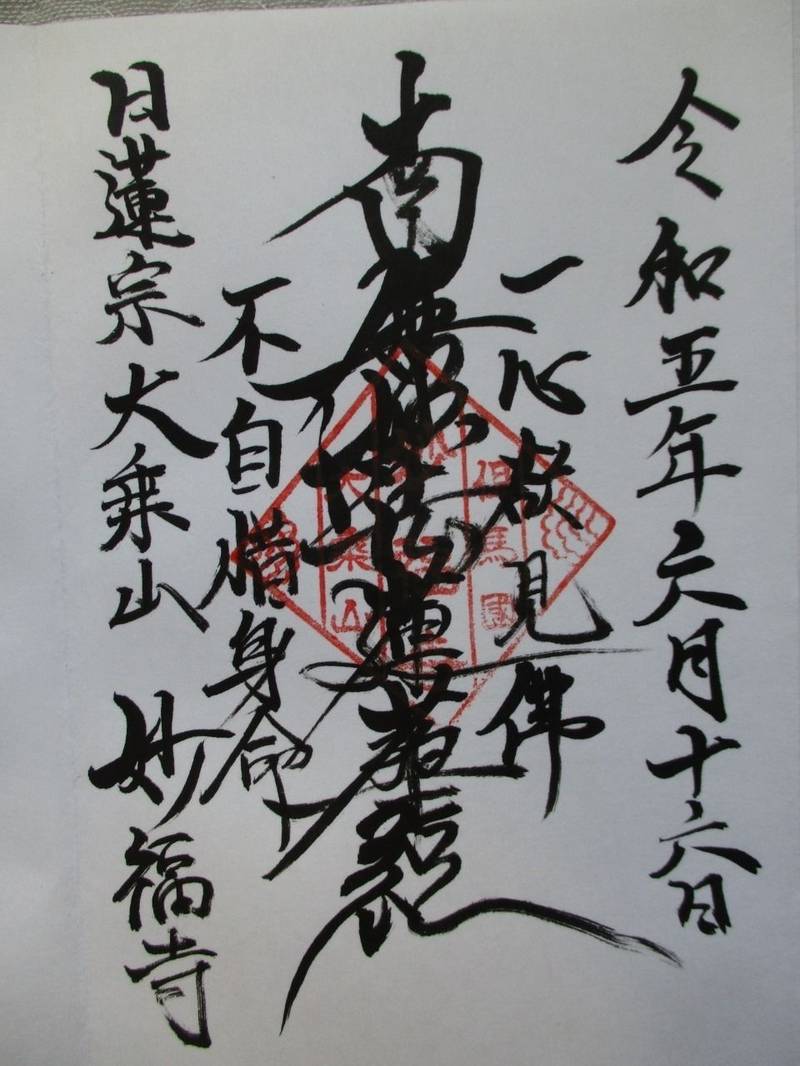 令和五年六月十六日
一心欲見佛
南無妙法蓮華経
不自惜身命
日蓮宗大乗山 妙福寺
但馬國
大乗山